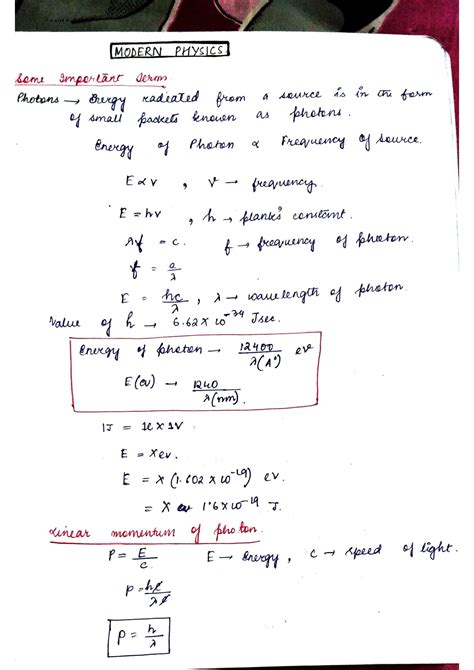 MODERN PHYSICS
Some Important Terms
Photons → Energy radiated from a source is in the form
of small packets known as photons.
Energy of Photon ∝ Frequency of source.
E ∝ ν , ν → frequency.
E = hν , h → plank's constant.
λf = c. f → frequency of photon.
f = c/λ
E = hc/λ , λ → wavelength of photon
Value of h → 6.62 × 10⁻³⁴ Jsec.
Energy of photon → 12400/λ(A°) eV
E(ev) → 1240/λ(nm).
1J = 1e × 1V
E = xev.
E = x (1.602 × 10⁻¹⁹) eV.
= x 1.6 × 10⁻¹⁹ J.
Linear momentum of photon.
P = E/c. E → Energy , c → speed of light.
P = hc/λc
P = h/λ